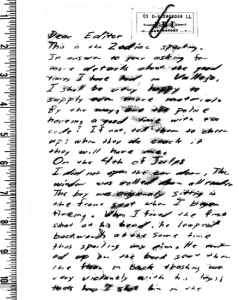 Dear Editor
This is the Zodiac speaking.
In answer to your asking for
more details about the good
times I have had in Vallejo,
I shall be very happy to
supply even more material.
By the way, are the police
haveing a good time with the
code? If not, tell them to cheer
up; when they do crack it
they will have me.
On the 4th of July
I did not open the car door, The
window was rolled down all ready.
The boy was origionaly sitting in
the front seat when I began
fireing. When I fired the first
shot at his head, he leaped
backwards at the same time
thus spoiling my aim. He end
ed up on the back seat then
the floor in back thashing out
very violently with his legs;